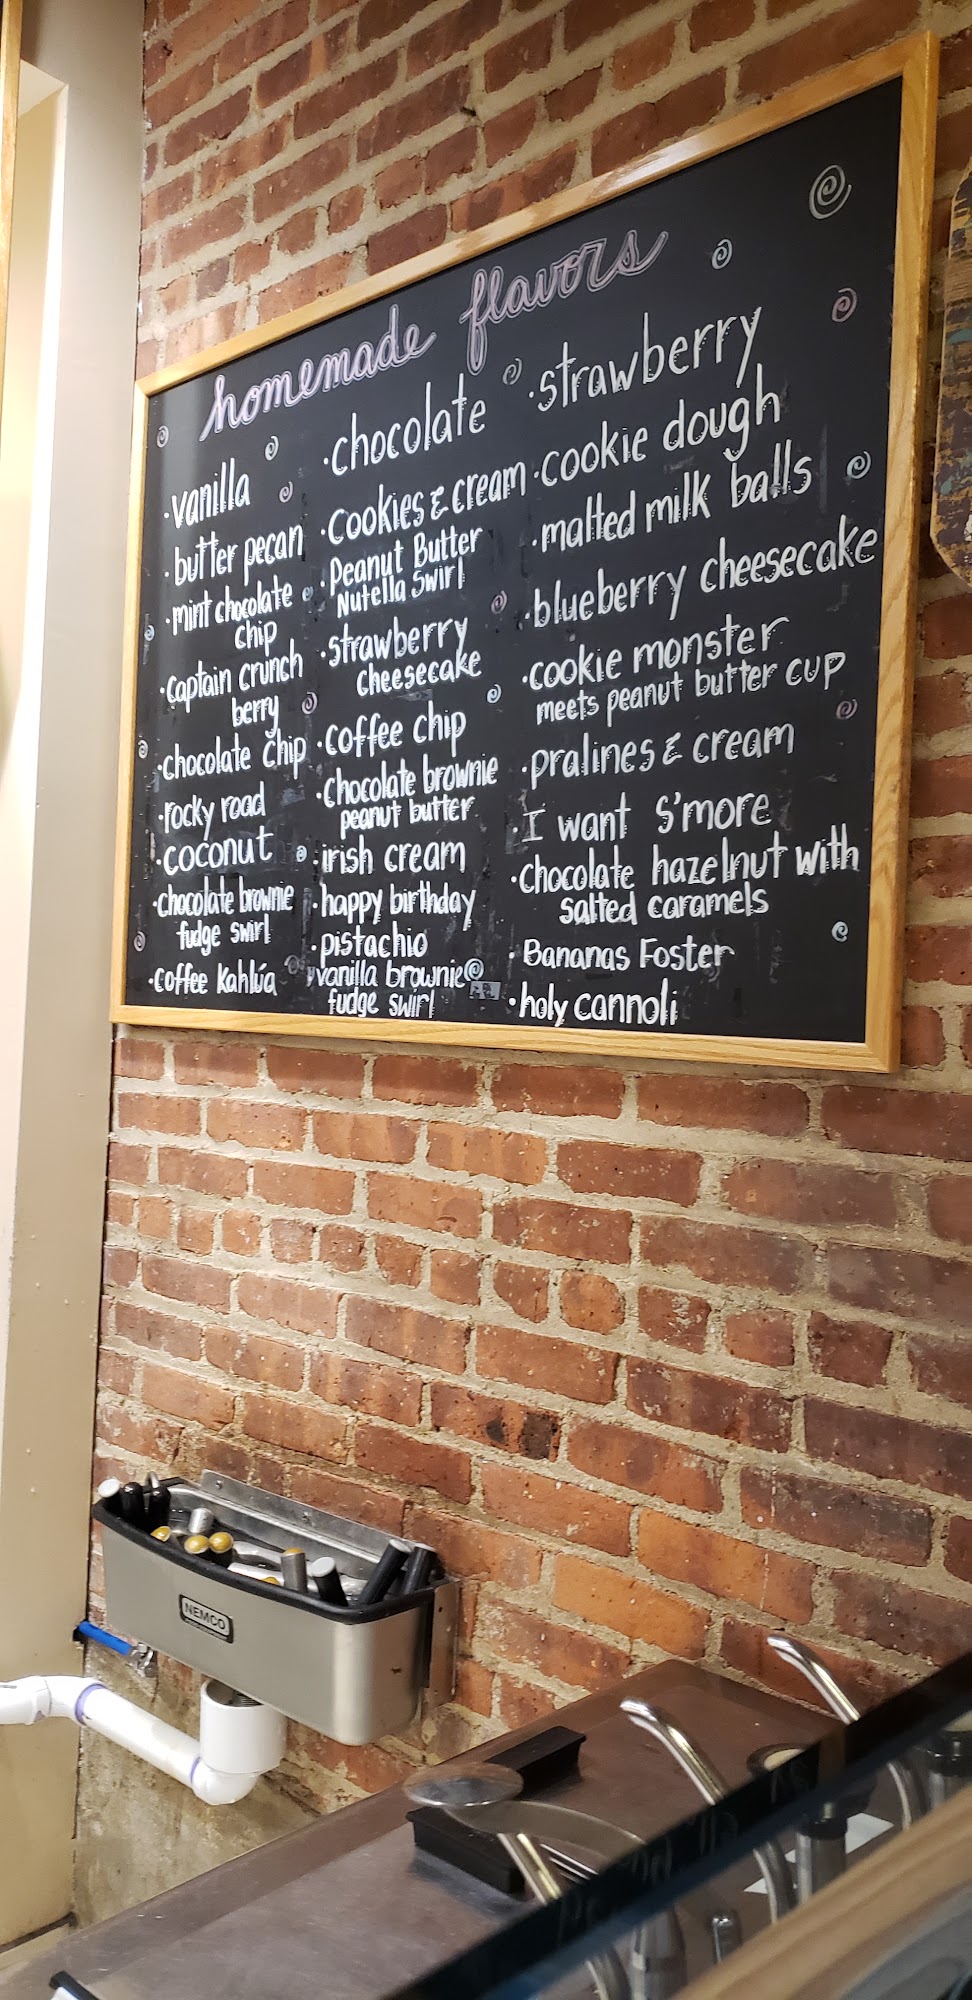 homemade flavors
·vanilla
·butter pecan
·mint chocolate
chip
·captain crunch
berry
·chocolate chip
·rocky road
·coconut
·chocolate brownie
fudge swirl
·coffee kahlúa
·chocolate
·cookies & cream
·Peanut Butter
Nutella Swirl
·strawberry
cheesecake
·coffee chip
·chocolate brownie
peanut butter
·irish cream
·happy birthday
·pistachio
vanilla brownie
fudge swirl
·strawberry
·cookie dough
·malted milk balls
·blueberry cheesecake
·cookie monster
meets peanut butter cup
·pralines & cream
·I want s'more
·chocolate hazelnut with
salted caramels
·Bananas Foster
·holy cannoli
NEMCO